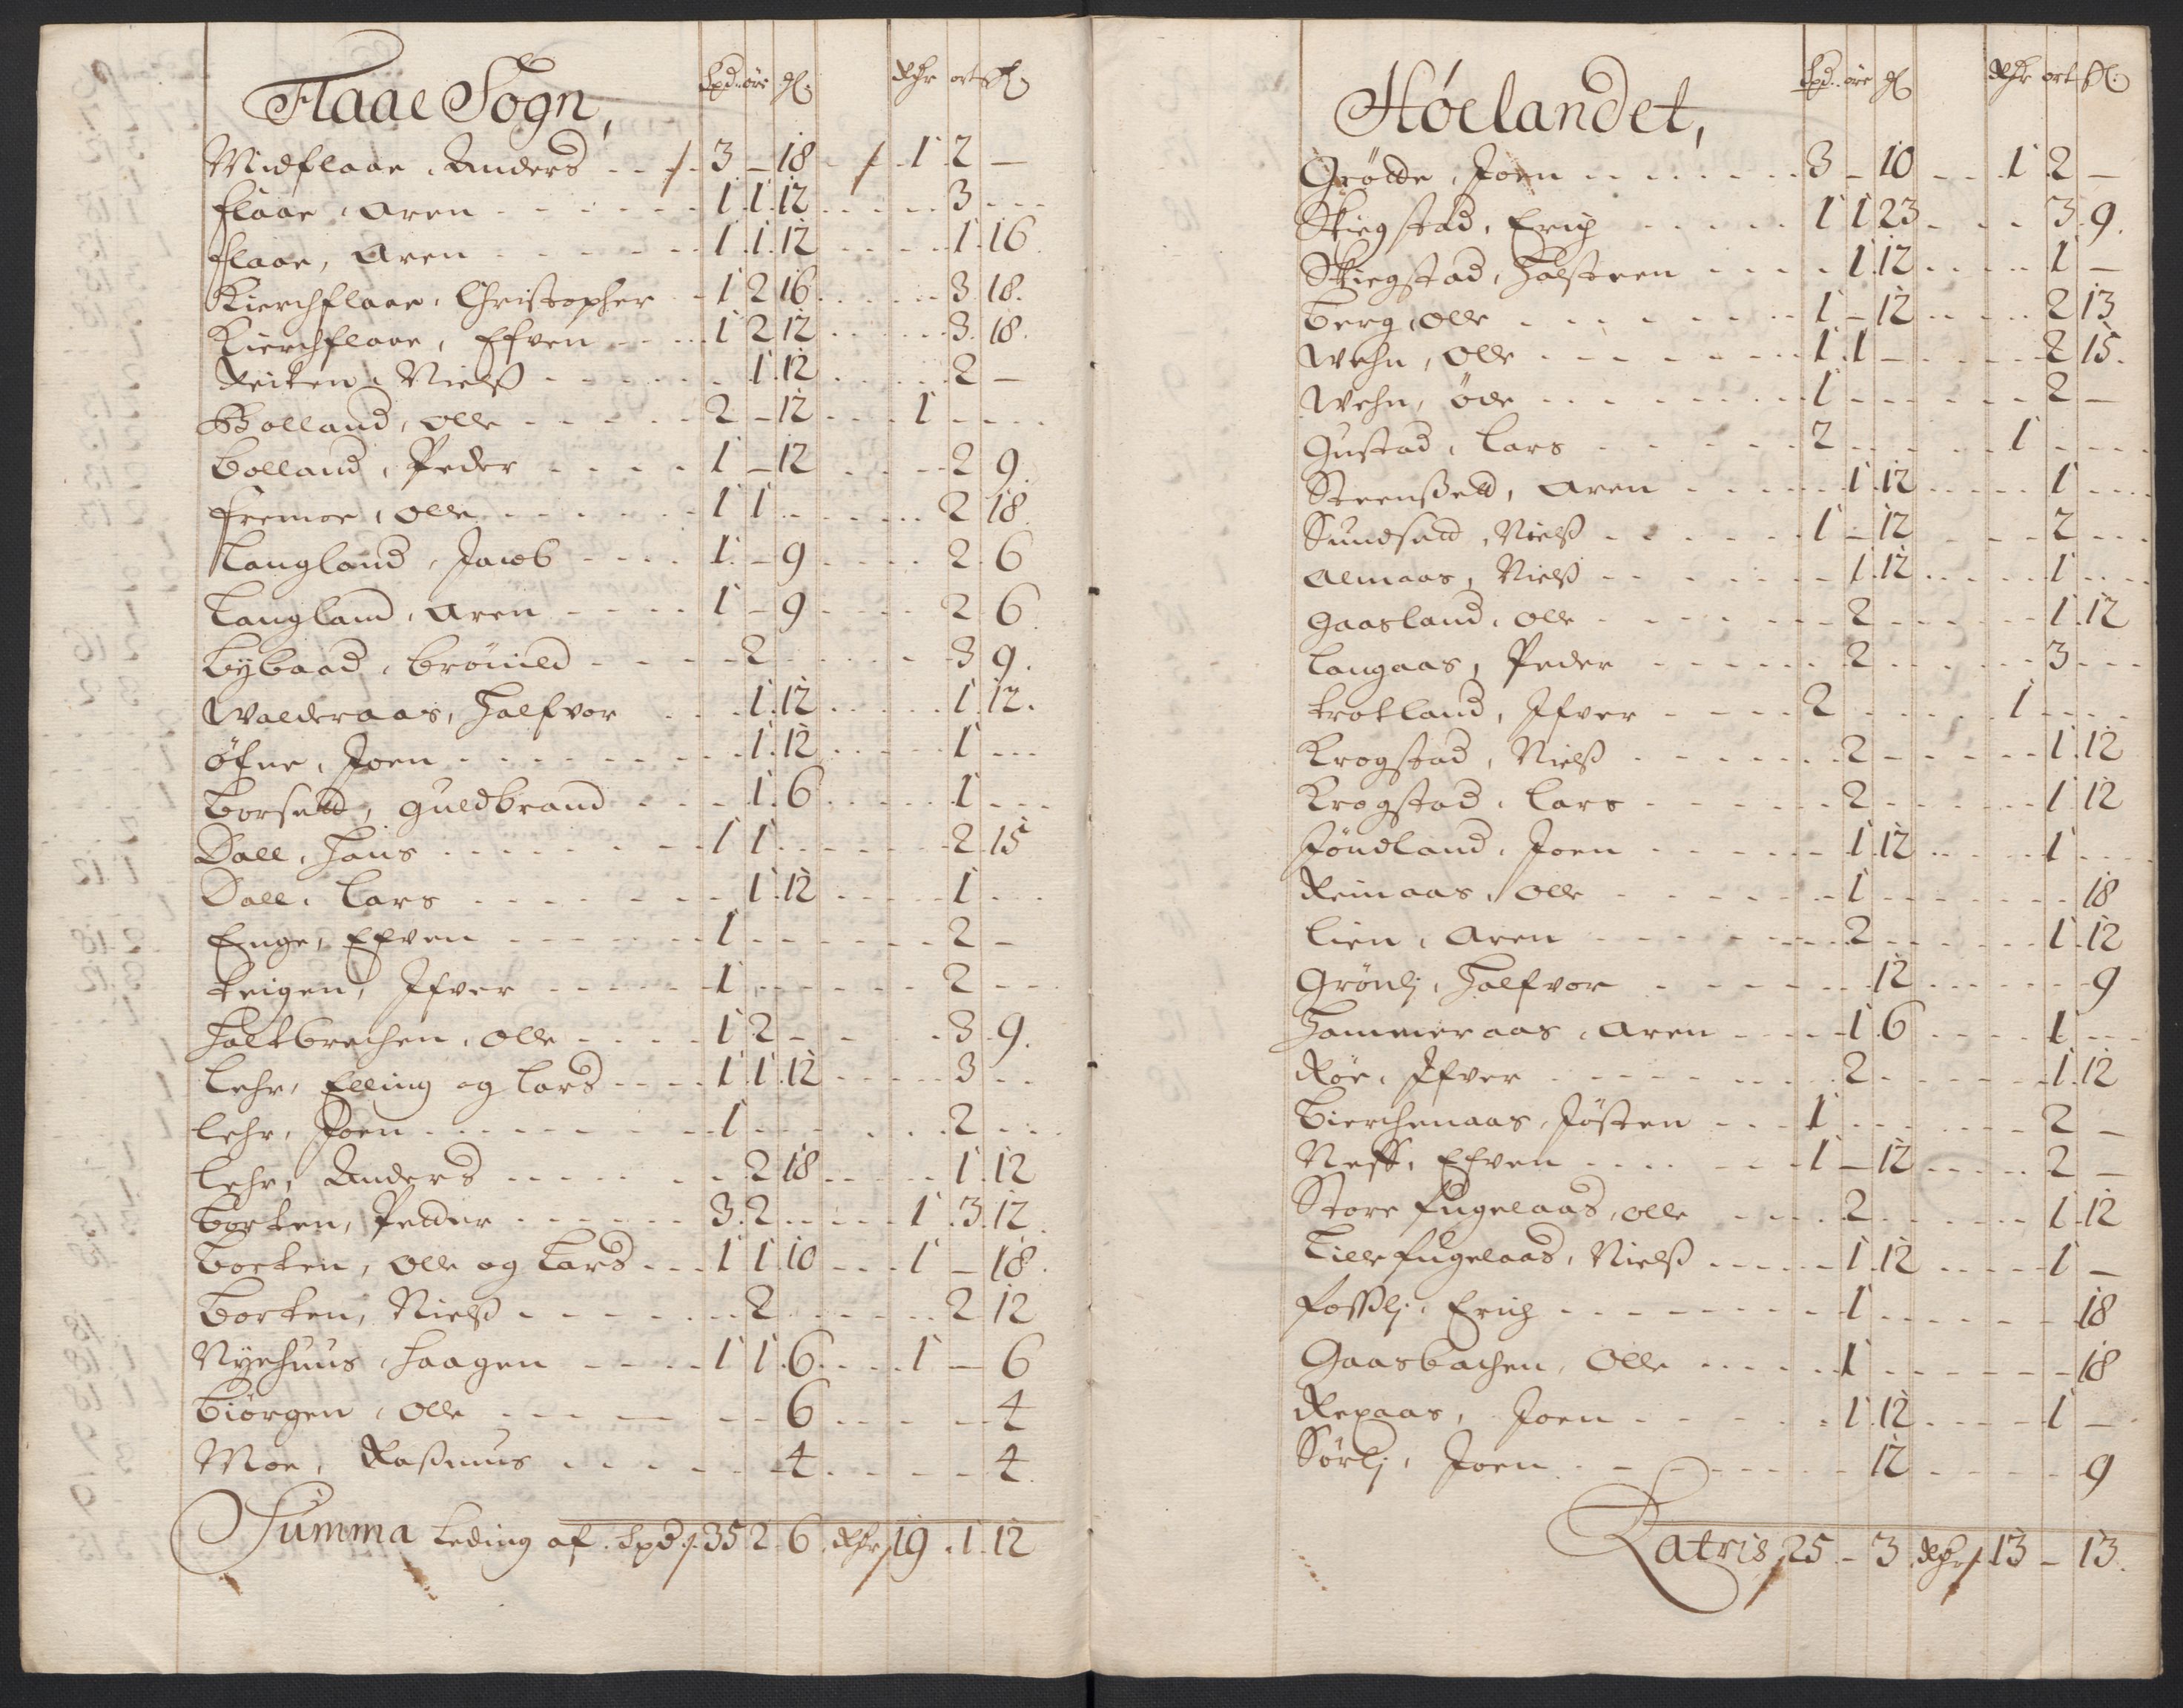 Flaae Sogn, Spd: øre ₰. Rdr ort ß
Midflaae, Anders - - 3 - 18 - - 1 2 -
flaae, Aren - - - 1 1 12 - - - 3 - -
flaae, Aren - - - 1 1 12 - - - 1 16
Kierchflaae, Christopher - 1 2 16 - - - 3 18.
Kierchflaae, Esven - - 1 2 12 - - - 3 18.
Reiten, Nielß - - - 1 12 - - - 2 -
Bolland, Olle - - - 2 - 12 - - 1 - - -
Bolland, Peder - - - 1 - 12 - - 2 9.
fremoe, Olle - - - 1 1 - - - 2 18.
Langland, Jacob - - - 1 - 9 - - - 2 6
Langland, Aren - - - 1 - 9 - - - 2 6.
Bybaad, Brönild - - - 2 - - - 3 9.
Walderaas, Halfvor - - 1 12 - - - 1 12.
öfne, Joen - - - 1 12 - - - 1 - -
Borsedt, Guldbrand - - - 1 6 - - - 1 - -
Dall, Hans - - - 1 1 - - - 2 15
Dall, Lars - - - 1 12 - - - 1 - -
Enge, Esven - - - 1 - - - 2 -
teigen, Ifver - - - 1 - - - 2 - -
Haltbrechen, Olle - - - 1 2 - - - 3 9.
Lehr, Elling og Lars - - - 1 1 12 - - - 3 - -
Lehr, Joen - - - 1 - - - 2 - -
Lehr, Anders - - - 2 18 - - - 1 12
Borten, Pedder - - - 3 2 - - - 1 3 12.
Borten, Olle og Lars - - - 1 1 10 - - - 1 - 18.
Borten, Nielß - - - 2 - - - 2 12
Nyehuus, Haagen - - - 1 1 6 - - - 1 - 6
Biörgen, Olle - - - 6 - - - 4
Moe, Raßmus - - - 4 - - - 4.
Summa Leding af Spd 35 2 6 Rdr 19 . 1 12
Höelandet, Spd. øre ₰ Rdr ort ß.
Grödde, Joen - - - 3 - 10 - - 1 2 -
Skiegstad, Erich - - - 1 1 23 - - - 3 9.
Skiegstad, Halsteen - - - 1 12 - - - 1 -
Berg, Olle - - - 1 - 12 - - - 2 13
Wehn, Olle - - - 1 1 - - - 2 15.
Wehn, öde - - - 1 - - - 2 -
Gustad, Lars - - - 2 - - - 1 - - -
Steenßedt, Aren - - - 1 12 - - - 1 - -
Sundsedt, Nielß - - - 1 - 12 - - - 2 - -
Almaas, Nielß - - - 1 12 - - - 1 - -
Gaasland, Olle - - - 2 - - - 1 12
Langaas, Peder - - - 2 - - - 3 - -
trotland, Ifver - - - 2 - - - 1 - - -
Krogstad, Nielß - - - 2 - - - 1 12
Krogstad, Lars - - - 2 - - - 1 12
Söndland, Joen - - - 1 12 - - - 1 - -
Reinaas, Olle - - - 1 - - - 18
Lien, Aren - - - 2 - - - 1 12
Grönli, Halfvor - - - 12 - - - 9
Hammeraas, Aren - - - 1 6 - - - 1 - -
Röe, Ifver - - - 2 - - - 1 12
Bierchenaas, Jösten - - - 1 - - - 2 -
Neff, Esven - - - 1 - 12 - - - 2 -
Store fugelaas, Olle - - - 2 - - - 1 12
Lille fugelaas, Nielß - - - 1 12 - - - 1 -
foßlj, Erich - - - 1 - - - 18
Gaasbachen, Olle - - - 1 - - - 18
Repaas, Joen - - - 1 12 - - - 1 -
Sörlj, Joen - - - 12 - - - 9
Latris 25 - 3 Rdr 13 - 13.